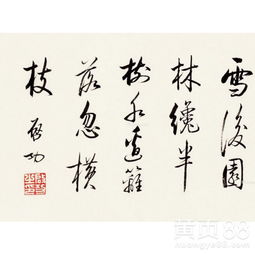 雪後園
林纔半
樹水邊籬
落忽橫
枝
启功
黄页88
huangye88.com